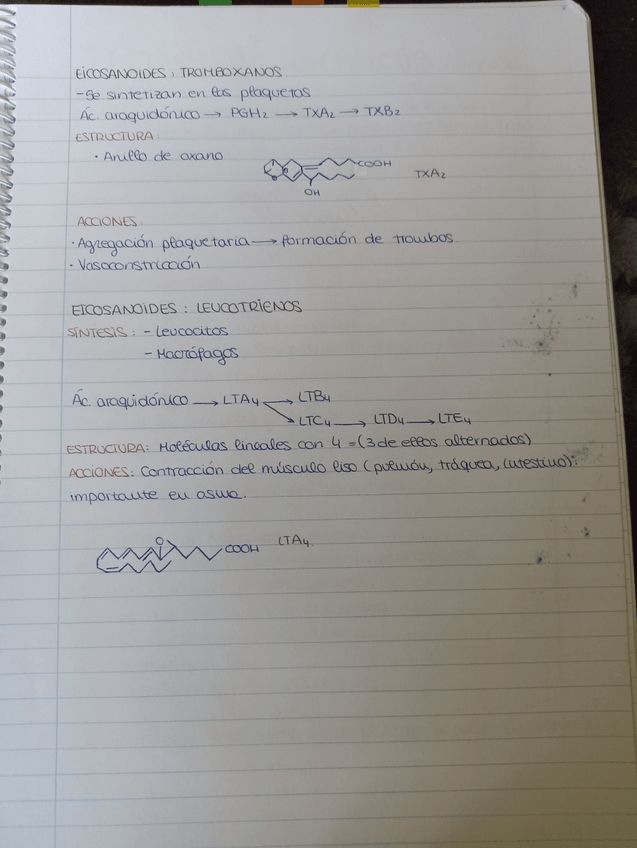 EICOSANOIDES: TROMBOXANOS
- Se sintetizan en las plaquetas
Ác. araquidónico → PGH₂ → TXA₂ → TXB₂
ESTRUCTURA:
· Anillo de oxano
COOH
TXA₂
OH
ACCIONES:
· Agregación plaquetaria → formación de trombos
· Vasoconstricción
EICOSANOIDES: LEUCOTRIENOS
SÍNTESIS: - Leucocitos
- Macrófagos
Ác. araquidónico → LTA₄ → LTB₄
→ LTC₄ → LTD₄ → LTE₄
ESTRUCTURA: Moléculas lineales con 4 = (3 de ellos alternados)
ACCIONES: Contracción del músculo liso (pulmón, tráquea, intestino):
importante en asma.
O
COOH
LTA₄